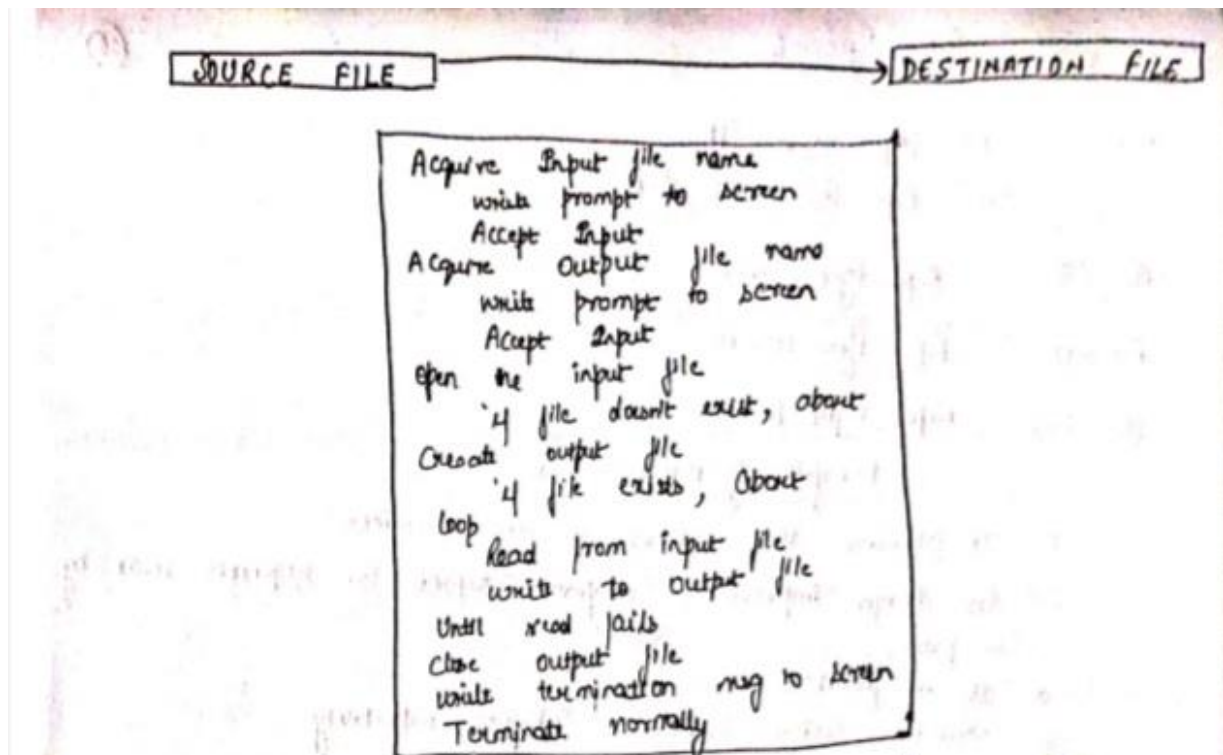 SOURCE FILE
DESTINATION FILE
Acquire Input file name
write prompt to screen
Accept Input
Acquire Output file name
write prompt to screen
Accept Input
Open the input file
if file doesn't exist, abort
Create output file
if file exists, Abort
Loop
Read from input file
write to output file
Until read fails
Close output file
write termination msg to screen
Terminate normally